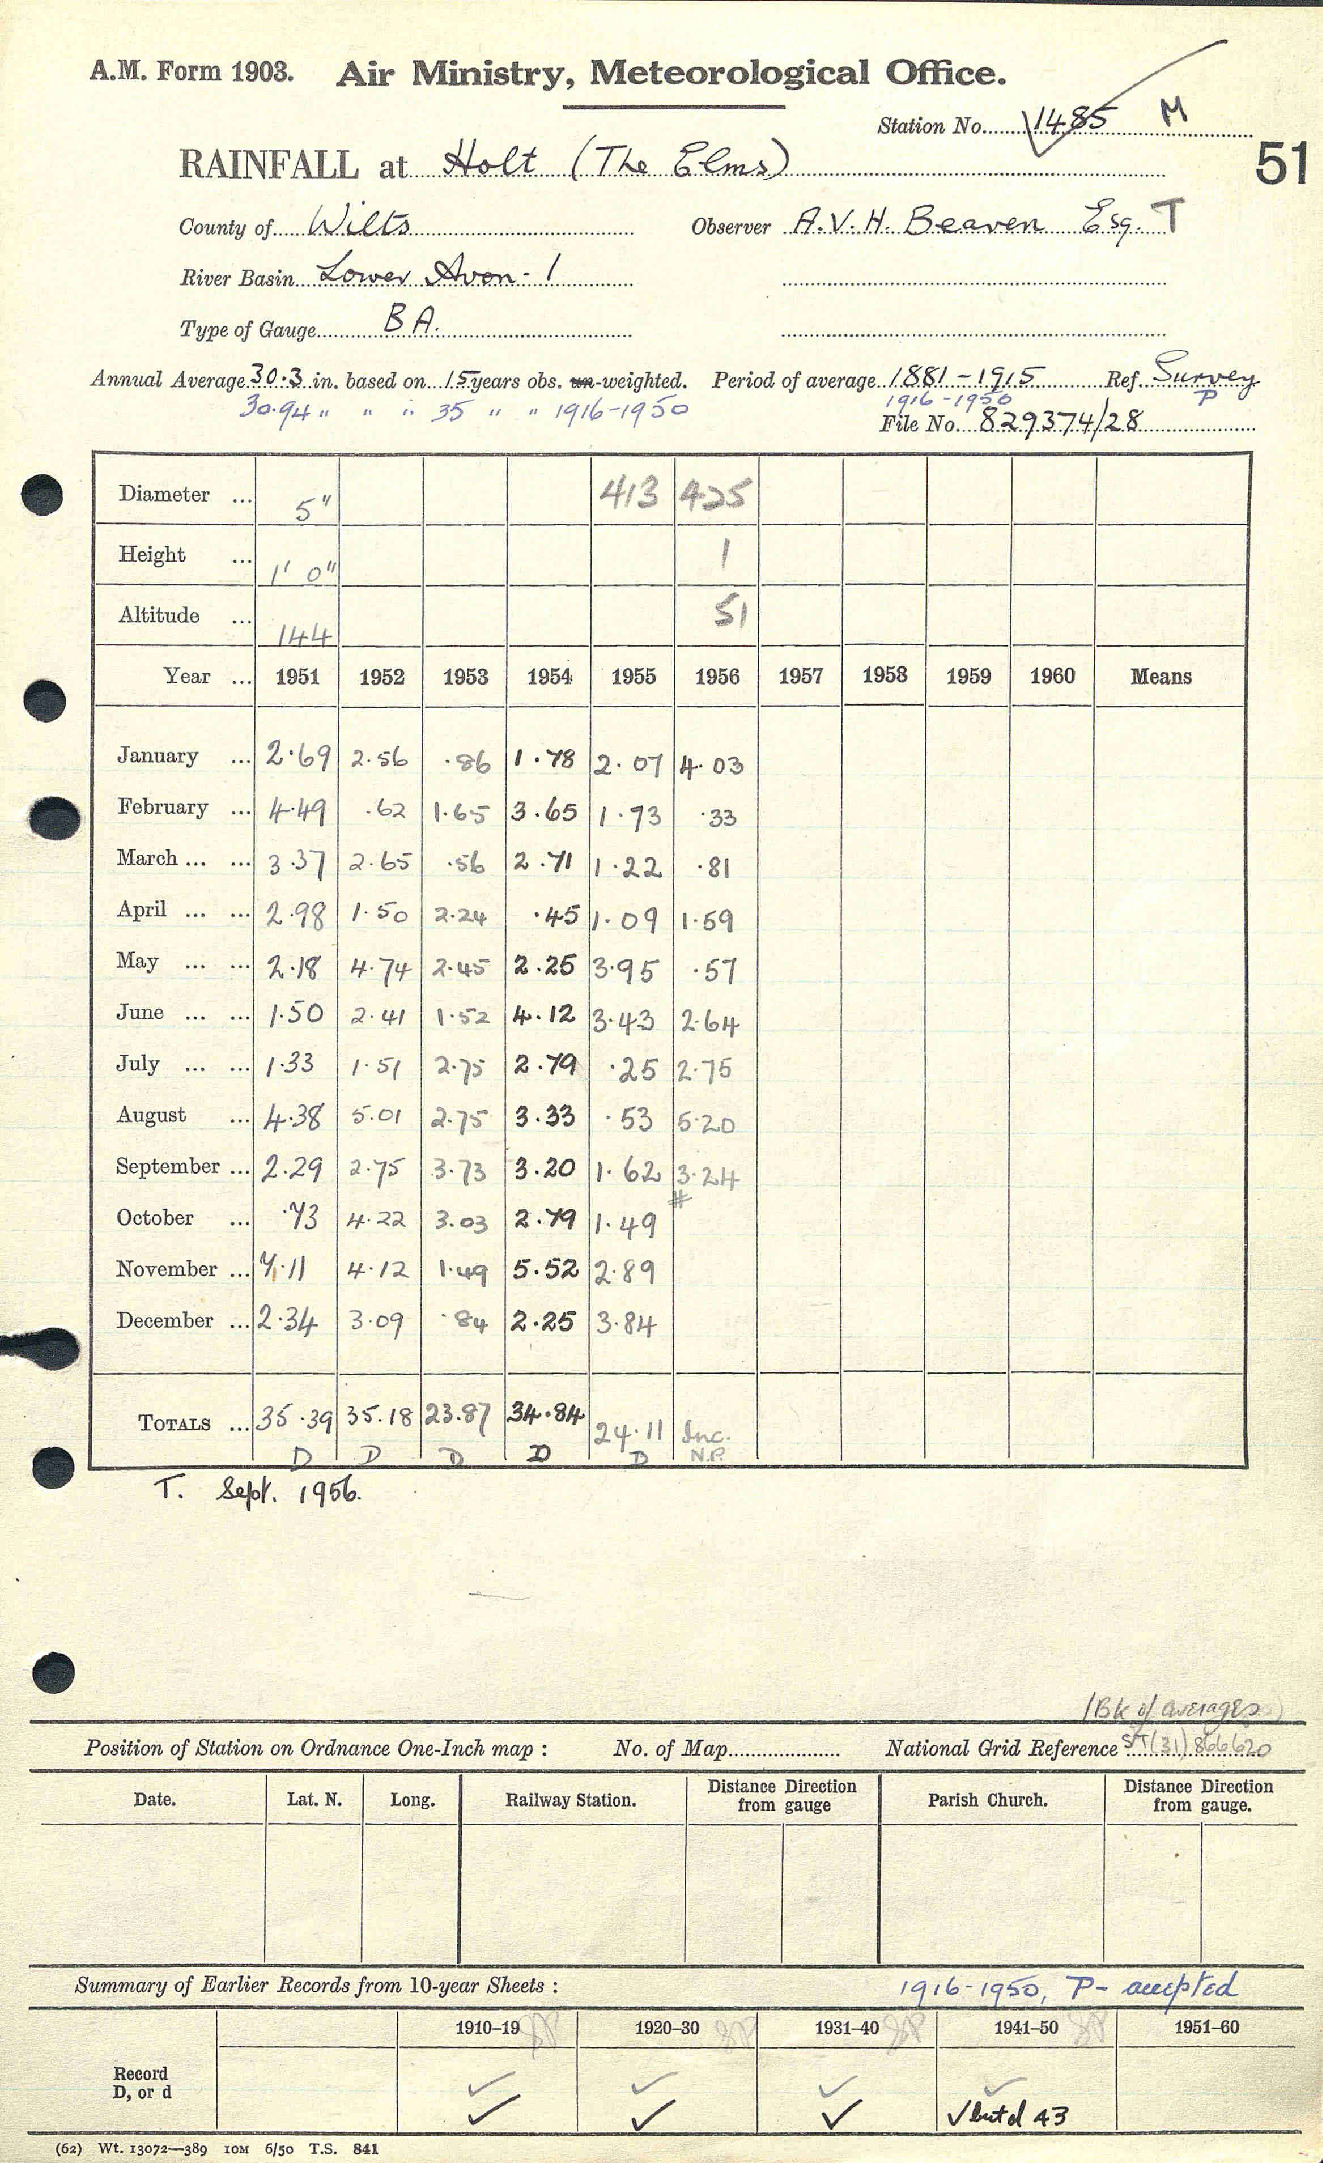 A.M. Form 1903. Air Ministry, Meteorological Office.
Station No. 1485 M
51
RAINFALL at Holt (The Elms)
County of Wilts Observer A.V.H. Beaven Esq. T
River Basin Lower Avon - 1
Type of Gauge BA.
Annual Average 30.3 in. based on 15 years obs. un-weighted. Period of average 1881-1915 Ref Survey
30.94 " " " 35 " " 1916-1950 1916-1950 P
File No. 829374/28
Diameter ... 5" 413 425
Height ... 1' 0" 1
Altitude ... 144 51
Year ... 1951 1952 1953 1954 1955 1956 1957 1958 1959 1960 Means
January ... 2.69 2.56 .86 1.78 2.07 4.03
February ... 4.49 .62 1.65 3.65 1.73 .33
March ... ... 3.37 2.65 .56 2.71 1.22 .81
April ... ... 2.98 1.50 2.24 .45 1.09 1.59
May ... ... 2.18 4.74 2.45 2.25 3.95 .57
June ... ... 1.50 2.41 1.52 4.12 3.43 2.64
July ... ... 1.33 1.51 2.75 2.79 .25 2.75
August ... 4.38 5.01 2.75 3.33 .53 5.20
September ... 2.29 2.75 3.73 3.20 1.62 3.24
#
October ... .73 4.22 3.03 2.79 1.49
November ... 7.11 4.12 1.49 5.52 2.89
December ... 2.34 3.09 .84 2.25 3.84
TOTALS ... 35.39 35.18 23.87 34.84 24.11 Inc.
D D D D D N.P.
T. Sept. 1956.
(Bk of averages)
Position of Station on Ordnance One-Inch map : No. of Map National Grid Reference ST(31)866620
Date. Lat. N. Long. Railway Station. Distance Direction from gauge Parish Church. Distance Direction from gauge.
Summary of Earlier Records from 10-year Sheets : 1916-1950, P- accepted
1910-19 1920-30 1931-40 1941-50 1951-60
Record
D, or d ✓ ✓ ✓ ✓
✓ ✓ ✓ ✓ but d 43
(62) Wt. 13072—389 10M 6/50 T.S. 841